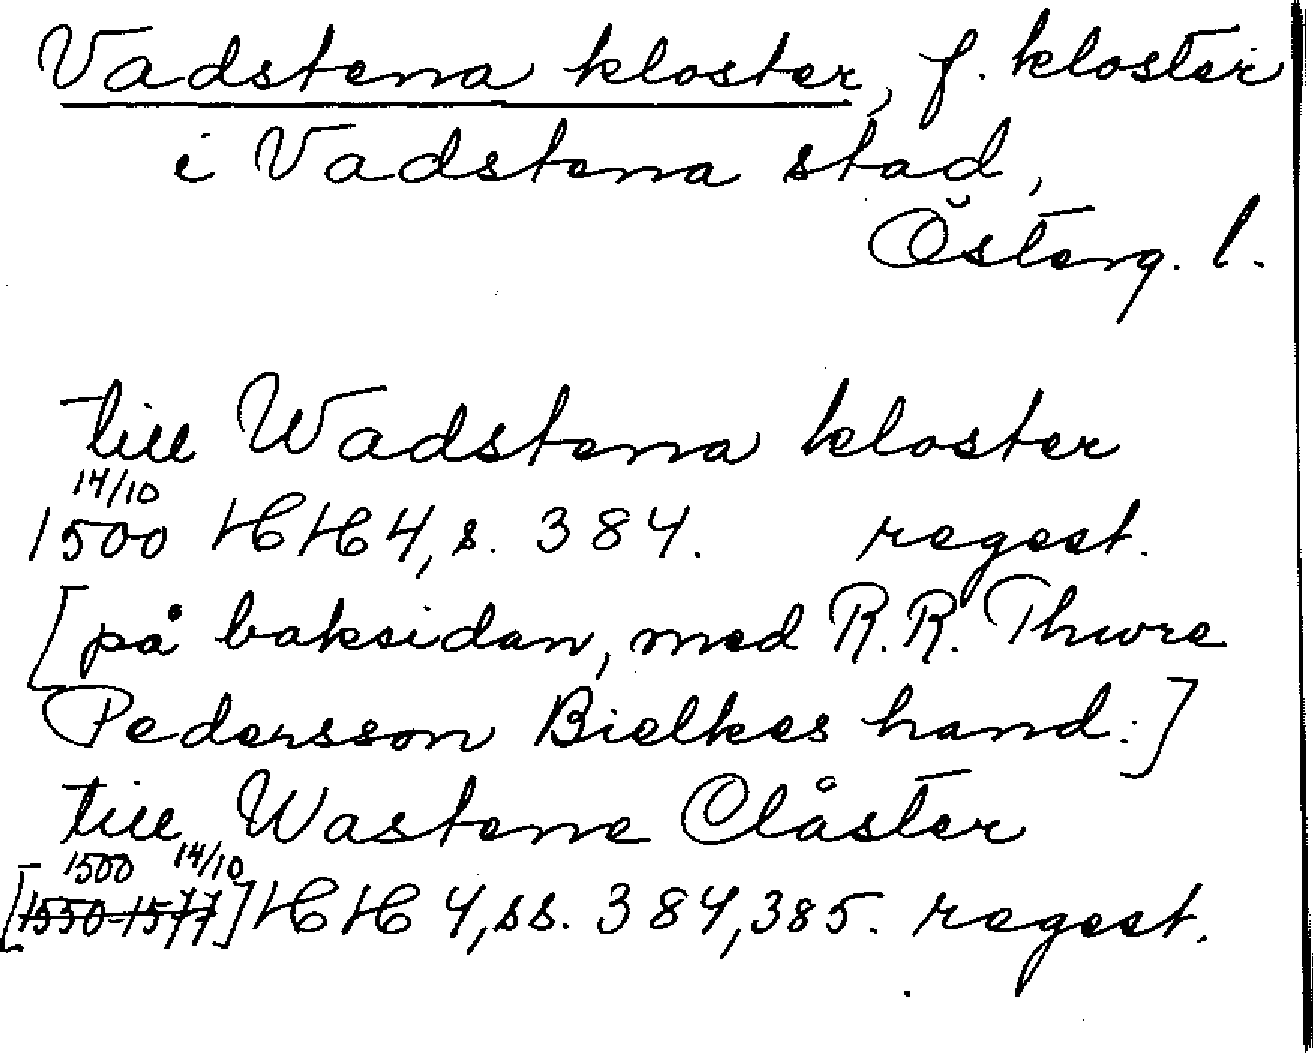 Vadstena kloster, f. kloster
i Vadstena stad,
Österg. l.
till Wadstena kloster
14/10
1500 HH 4, s. 384. regest.
[på baksidan, med R.R. Thure
Pedersson Bielkes hand:]
till Wastene Clåster
1500 14/10
[1550-1577] HH 4, ss. 384, 385. regest.